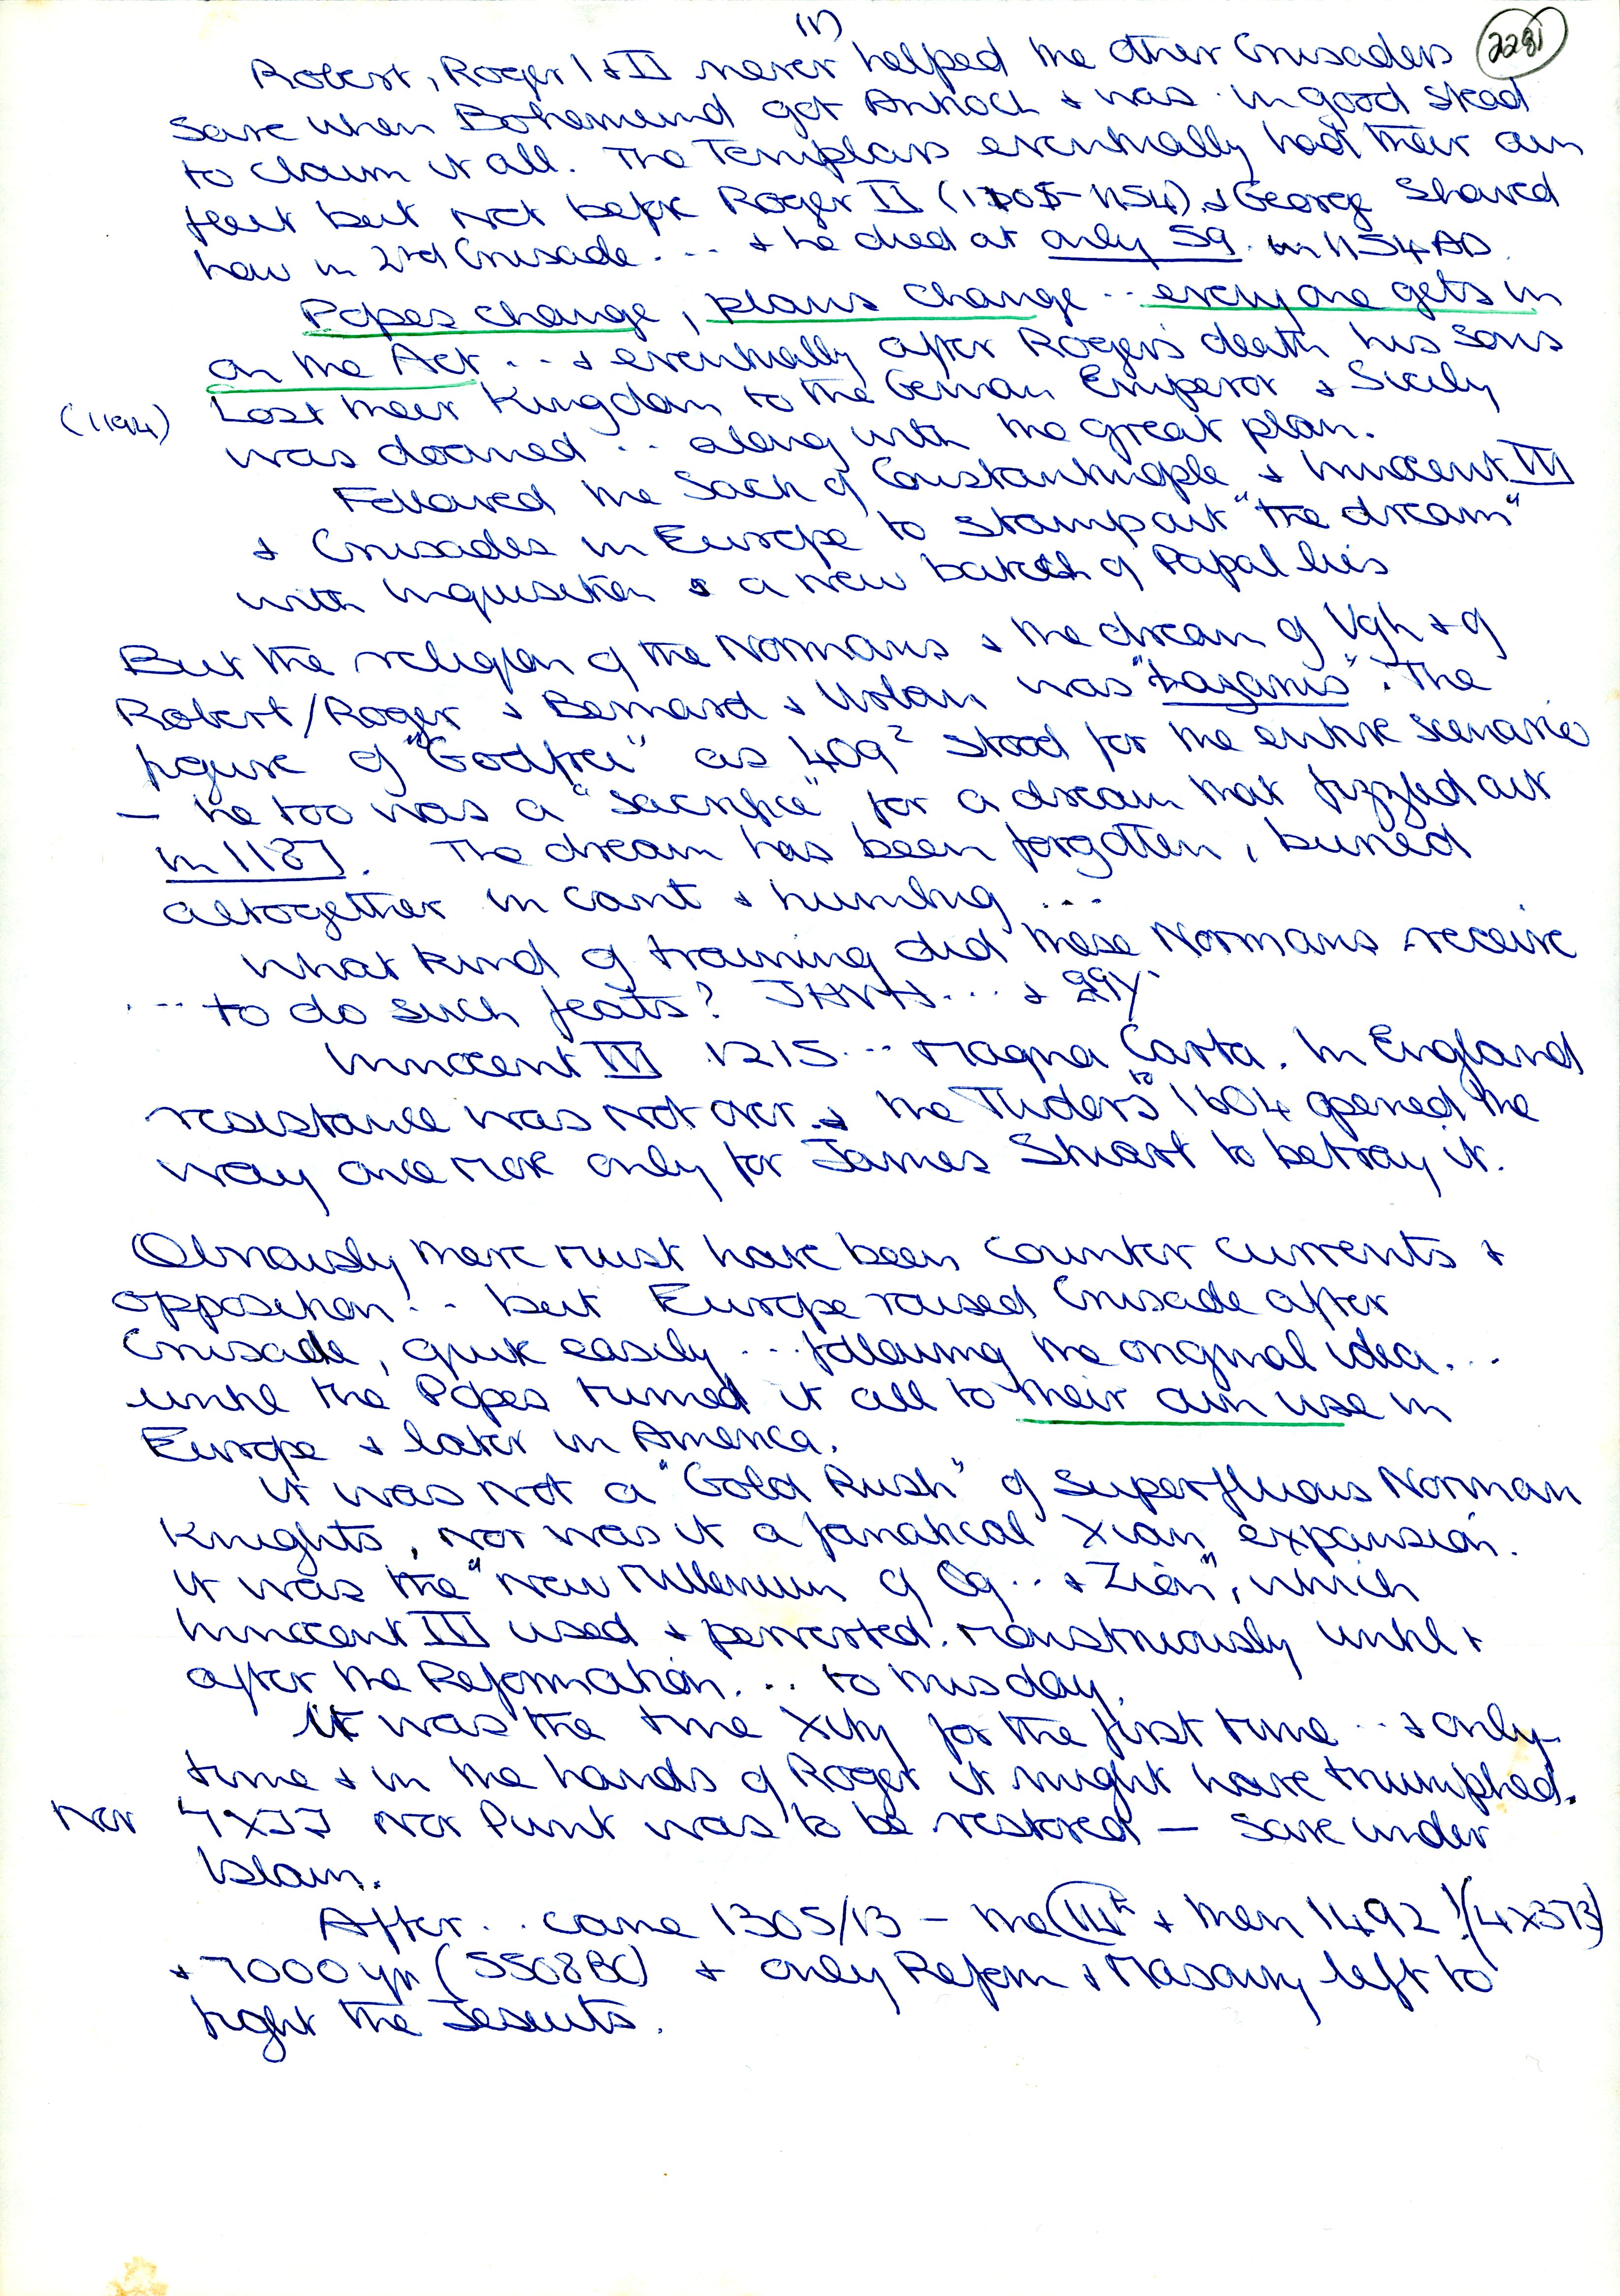 (V)
2281
Robert, Roger I + II never helped the other Crusaders
save when Bohemund got Antioch + was in good stead
to claim it all. The Templars eventually had their own
fleet but not before Roger II (1105-1154) + George shared
how in 2nd Crusade... + he died at only 59 in 1154 AD.
Popes change, plans change .. everyone gets in
on the Act... + eventually after Roger's death his sons
(1194) Lost their Kingdom to the German Emperor + Sicily
was doomed .. along with the great plan.
Followed the Sack of Constantinople + Innocent III
+ Crusades in Europe to stamp out "the dream"
with inquisition & a new batch of Papal lies
But the religion of the Normans + the dream of Vgh + of
Robert/Roger + Bernard + Urban was . The
figure of "Godfrei" as 409² stood for the entire scenario
— he too was a "sacrifice" for a dream that fizzled out
in 1187. The dream has been forgotten, buried
altogether in cant + humbug ...
What kind of training did these Normans receive
... to do such feats? JHVH... + 
Innocent III 1215... Magna Carta. In England
resistance was not over + the Tudors to 1604 opened the
way once more only for James Stuart to betray it.
Obviously there must have been counter currents +
opposition! .. but Europe raised Crusade after
Crusade, quite easily ... following the original idea...
until the Popes turned it all to their own use in
Europe + later in America.
It was not a "Gold Rush" of superfluous Norman
Knights, nor was it a fanatical Xian expansion.
It was the "New Millenium of Og .. + Zion", which
Innocent III used + perverted monstruously until +
after the Reformation... to this day.
It was the time Xity for the first time .. + only
time + in the hands of Roger it might have triumphed.
Nor 4x77 nor Punt was to be restored — save under
Islam.
After .. came 1305/13 — the + then 1492 !(4x373)
+ 7000 yr (5508 BC) + only Reform + Masonry left to
fight the Jesuits.